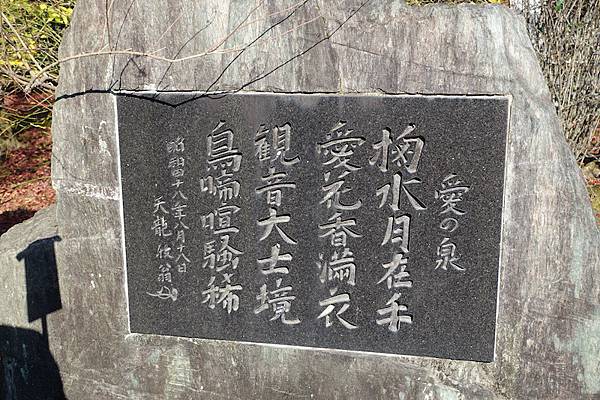 愛の泉
掬水月在手
愛花香満衣
観音大士境
鳥啼喧騒稀
昭和四十八年八月八日
天龍牧翁